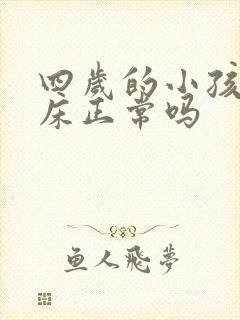 四歲的小孩
床正常吗
鱼人飛夢